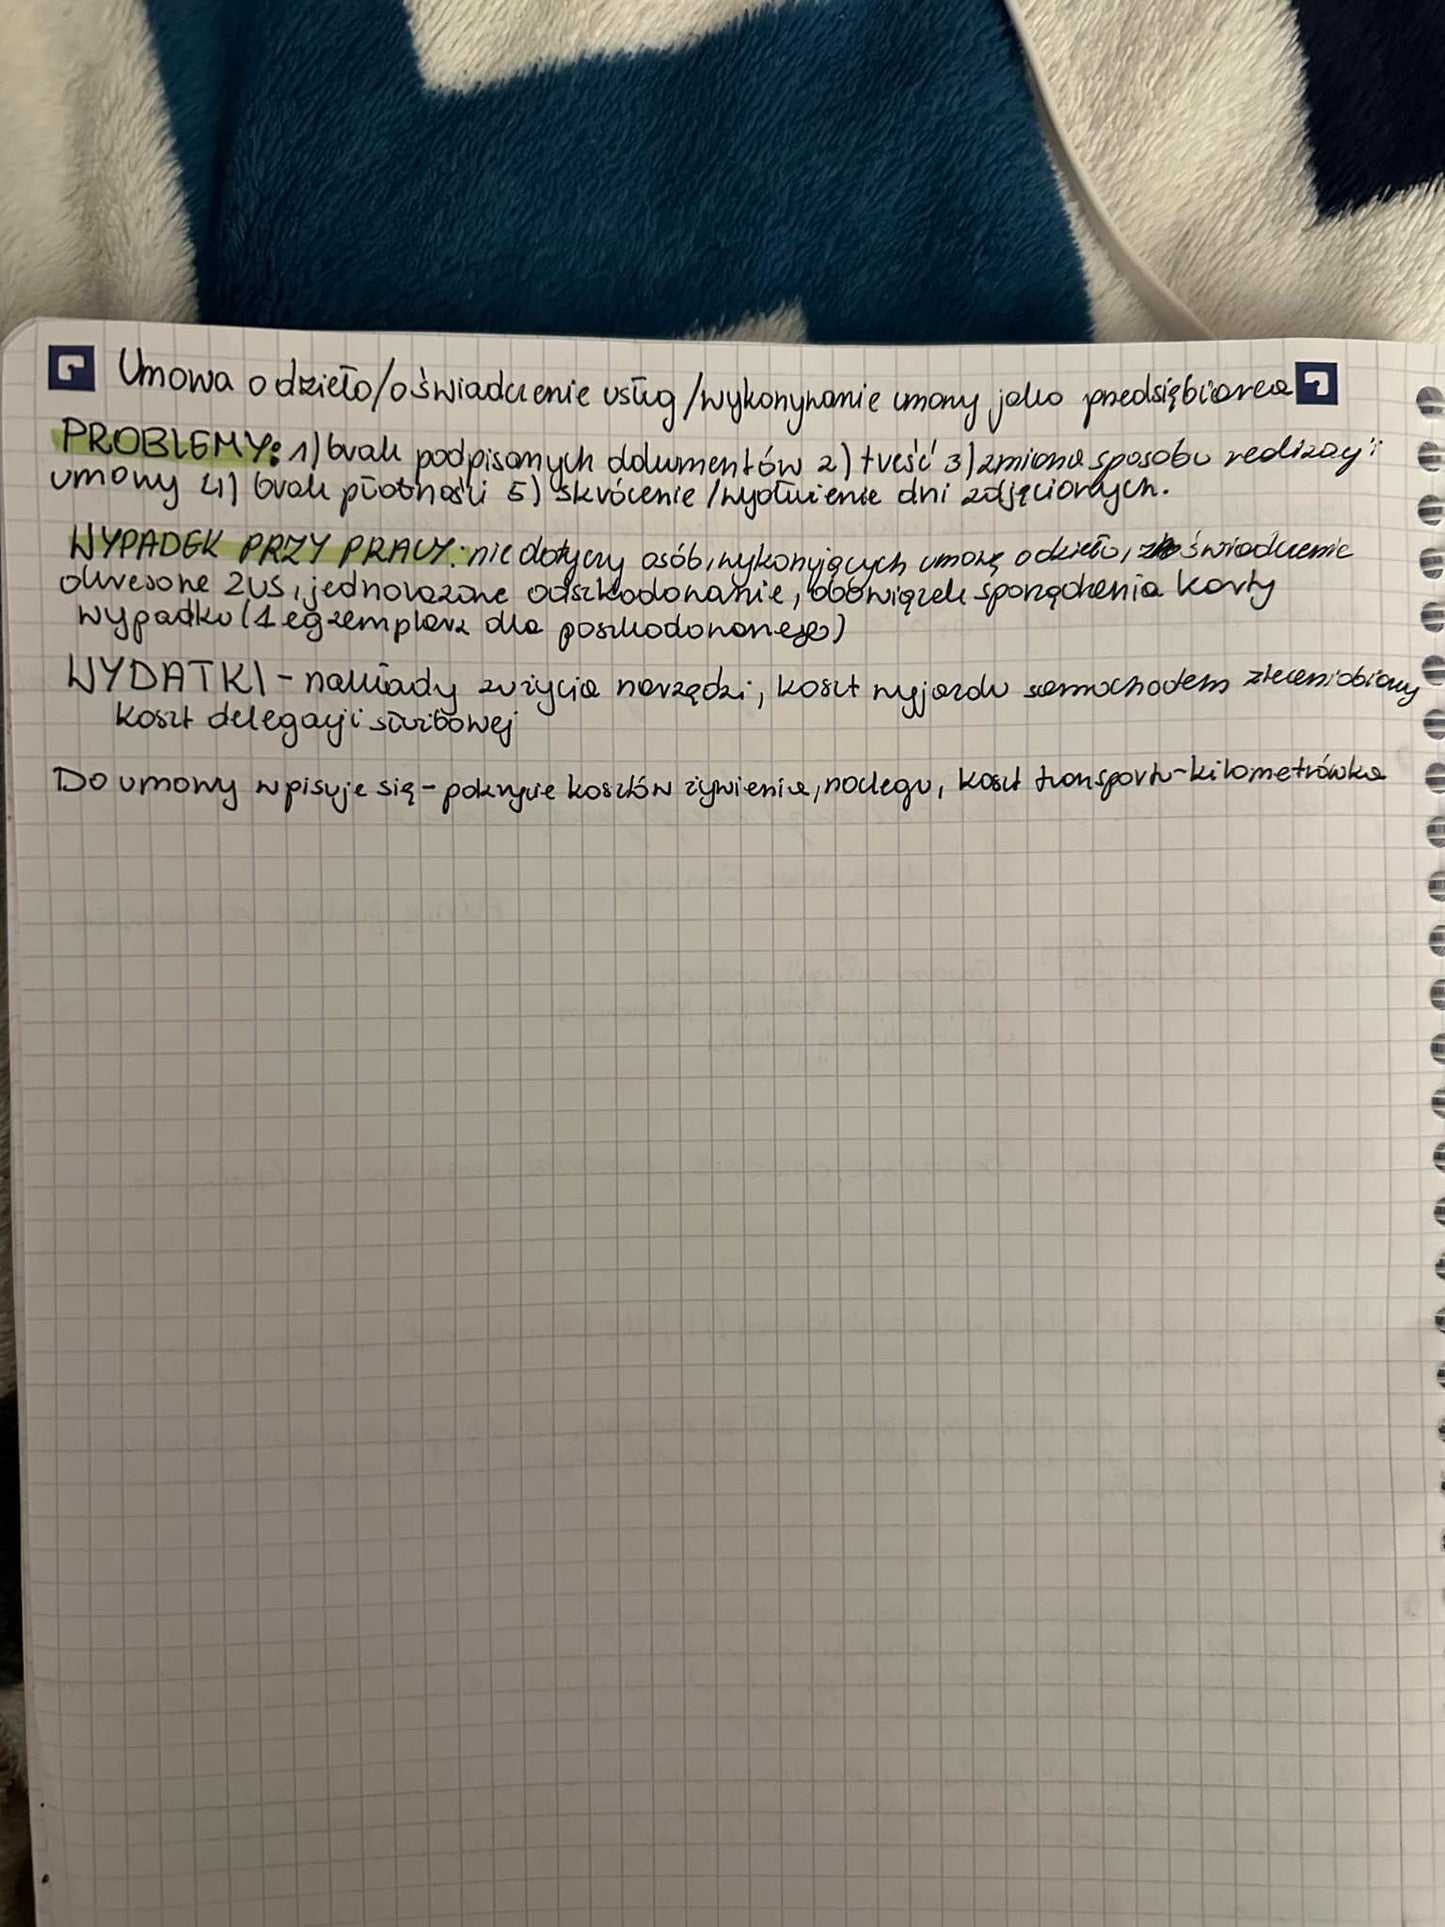 Umowa o dzieło/o świadczenie usług/wykonywanie umowy jako przedsiębiorca
PROBLEMY: 1) brak podpisanych dokumentów 2) treść 3) zmiana sposobu realizacji
umowy 4) brak płatności 5) skrócenie/wydłużenie dni zdjęciowych.
WYPADEK PRZY PRACY: nie dotyczy osób, wykonujących umowę o dzieło, świadczenie
okresone ZUS, jednorazowe odszkodowanie, obowiązek sporządzenia karty
wypadku (1 egzemplarz dla poszkodowanego)
WYDATKI - nakłady zużycia narzędzi, koszt wyjazdu samochodem zleceniobiorcy
koszt delegacji służbowej
Do umowy wpisuje się - pokrycie kosztów żywienia, noclegu, koszt transportu - kilometrówka